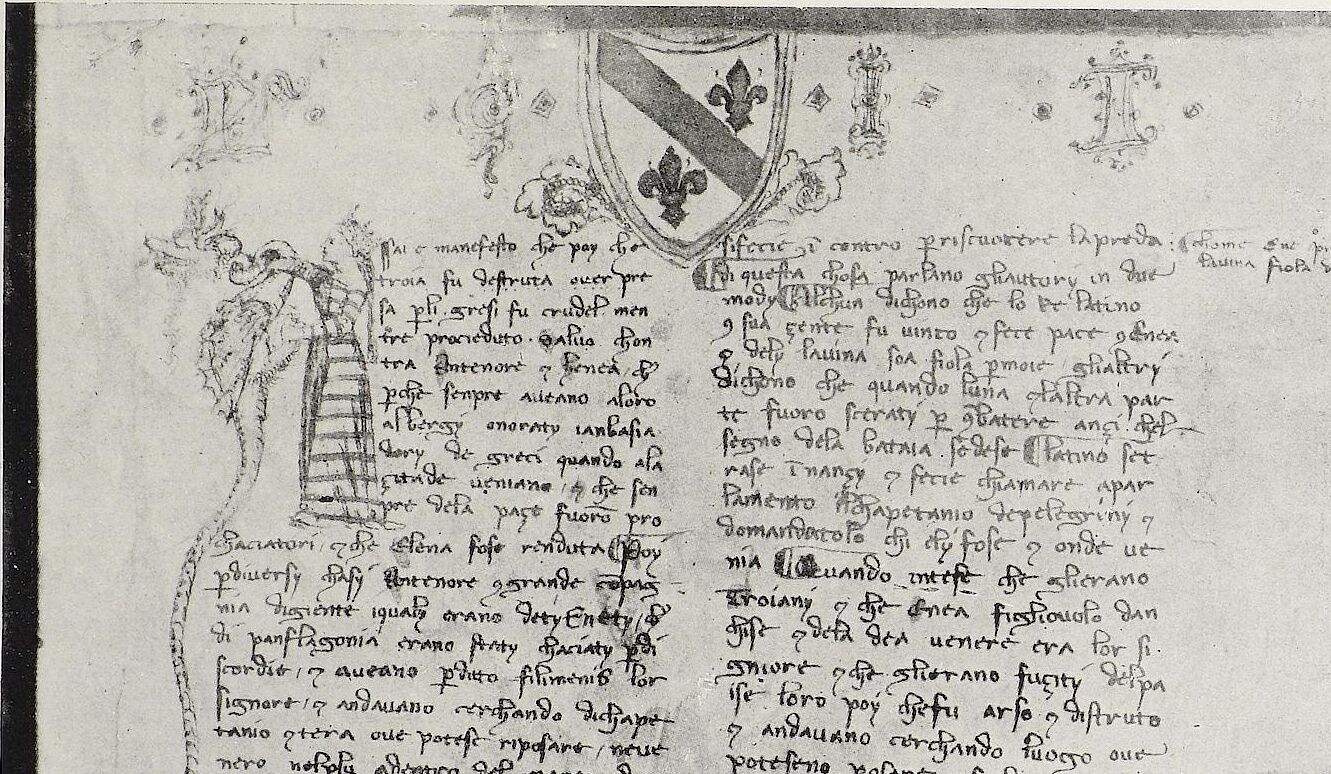 ssai e manefesto che poy che
troia fu destruta over pre
sa p li gresi fu crudel men
tre procieduto. Salvo chon
tra Antenore ⁊ henea, ch
p che senpre aveano aloro
albergy onoraty ianbasia
dory de greci quando ala
çitade veniano, ⁊ che sen
pre dela paçe fuorō pro
chaciatori, ⁊ che Elena fose renduta Poy
p diversy chasy Antenore ꝯ grande cōpag
nia digiente iqualy erano dety Enety,
di panflagonia erano staty chaciaty p di
scordie, ⁊ aveano p duto filimenis lor
signore, ⁊ andavano cerchando dichape
tanio ⁊ tera ove potese riposare, neve
nero nelplu
sifecie contro priscuotere lapreda.
Di questa chosa parlano gliautory in due
mody Alchun dichono che lo Re latino
ꝯ sua çente fu vinto ⁊ fece pace ꝯ Enea
⁊ dely lavina soa fiola p moie, glialtry
dichono che quando luna ⁊ laltra par
te fuoro sceraty p ꝯbatere ançi chel
segno dela bataia sedese latino set
rase īnançy ⁊ fecie chiamare apar
lamento Alchapetanio depelegriny ⁊
domandatolo chi ely fose ⁊ onde ve
nia Quando intese che glierano
Troiany ⁊ che Enea figliovolo dan
chise ⁊ dela dea venere era lor si
gniore ⁊ che glierano fuçity delpa
ise loro poy chefu arso ⁊ distruto
⁊ andavano cerchando luogo ove
poteseno
chome Ene
lavina fiola d